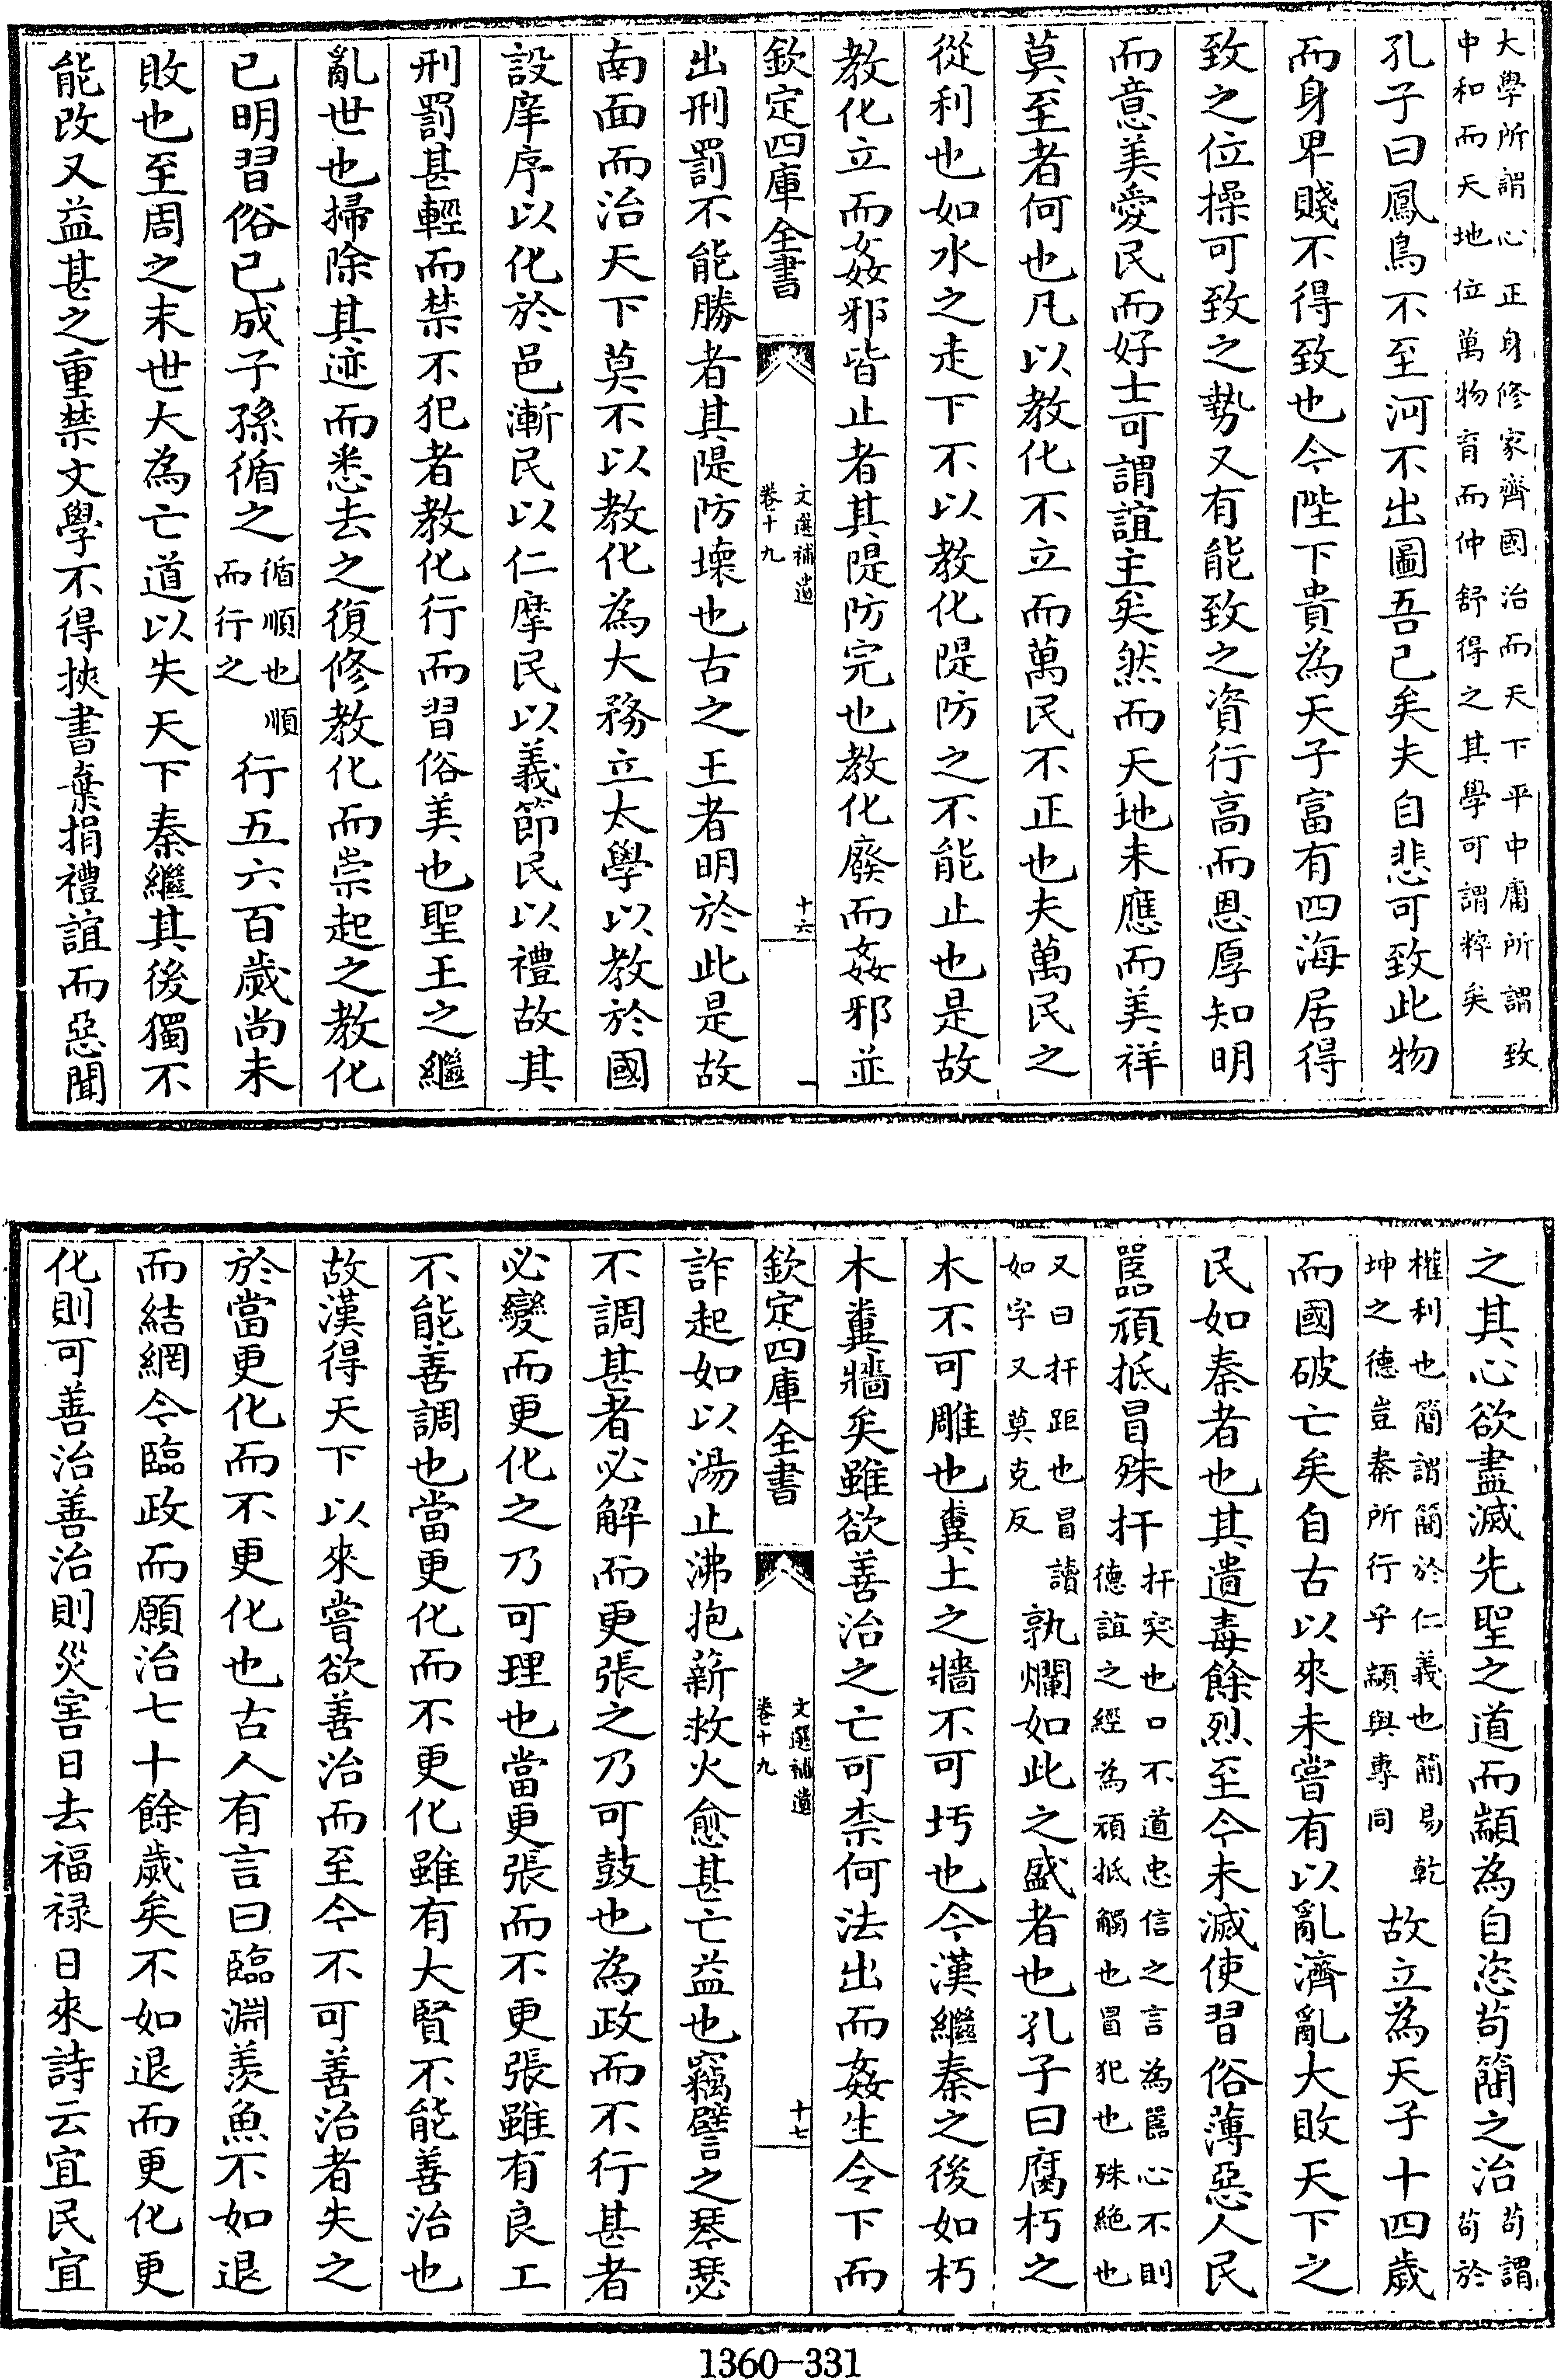 大學所謂心正身修家齊國治而天下平中庸所謂致
中和而天地位萬物育而仲舒得之其學可謂粹矣
孔子曰鳳鳥不至河不出圖吾已矣夫自悲可致此物
而身卑賤不得致也今陛下貴為天子富有四海居得
致之位操可致之勢又有能致之資行高而恩厚知明
而意美愛民而好士可謂誼主矣然而天地未應而美祥
莫至者何也凡以教化不立而萬民不正也夫萬民之
從利也如水之走下不以教化隄防之不能止也是故
教化立而姦邪皆止者其隄防完也教化廢而姦邪並
欽定四庫全書
文選補遺
卷十九
十六
出刑罰不能勝者其隄防壞也古之王者明於此是故
南面而治天下莫不以教化為大務立太學以教於國
設庠序以化於邑漸民以仁摩民以義節民以禮故其
刑罰甚輕而禁不犯者教化行而習俗美也聖王之繼
亂世也掃除其迹而悉去之復修教化而崇起之教化
已明習俗已成子孫循之
循順也順
而行之
行五六百歲尚未
敗也至周之末世大為亡道以失天下秦繼其後獨不
能改又益甚之重禁文學不得挾書棄捐禮誼而惡聞
之其心欲盡滅先聖之道而顓為自恣苟簡之治
苟謂
苟於
權利也簡謂簡於仁義也簡易乾
坤之德豈秦所行乎顓與專同
故立為天子十四歲
而國破亡矣自古以來未嘗有以亂濟亂大敗天下之
民如秦者也其遺毒餘烈至今未滅使習俗薄惡人民
嚚頑抵冒殊扞
扞突也口不道忠信之言為嚚心不則
德誼之經為頑抵觸也冒犯也殊絶也
又曰扞距也冒讀
如字又莫克反
孰爛如此之盛者也孔子曰腐朽之
木不可雕也糞土之牆不可圬也今漢繼秦之後如朽
木糞牆矣雖欲善治之亡可柰何法出而姦生令下而
欽定四庫全書
文選補遺
卷十九
十七
詐起如以湯止沸抱薪救火愈甚亡益也竊譬之琴瑟
不調甚者必解而更張之乃可鼓也為政而不行甚者
必變而更化之乃可理也當更張而不更張雖有良工
不能善調也當更化而不更化雖有大賢不能善治也
故漢得天下以來嘗欲善治而至今不可善治者失之
於當更化而不更化也古人有言曰臨淵羨魚不如退
而結網今臨政而願治七十餘歲矣不如退而更化更
化則可善治善治則災害日去福祿日來詩云宜民宜
1360-331